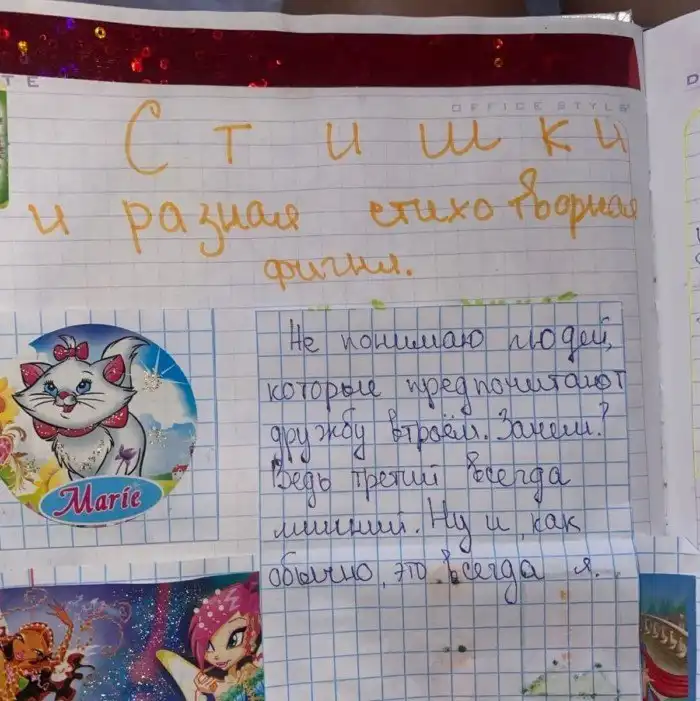 OFFICE STYLE
Стишки
и разная стихотворная
фигня.
Не понимаю людей,
которые предпочитают
дружбу втроём. Зачем?
Ведь третий всегда
лишний. Ну и, как
обычно, это всегда я.
Marie